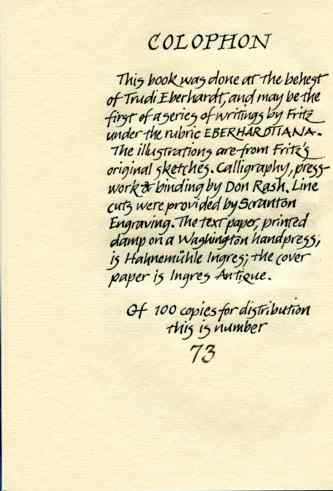 COLOPHON
This book was done at the behest
of Trudi Eberhardt, and may be the
first of a series of writings by Fritz
under the rubric EBERHARDTIANA.
The illustrations are from Fritz's
original sketches. Calligraphy, press-
work & binding by Don Rash. Line
cuts were provided by Scranton
Engraving. The text paper, printed
damp on a Washington handpress,
is Hahnemühle Ingres; the cover
paper is Ingres Antique.
Of 100 copies for distribution
this is number
73